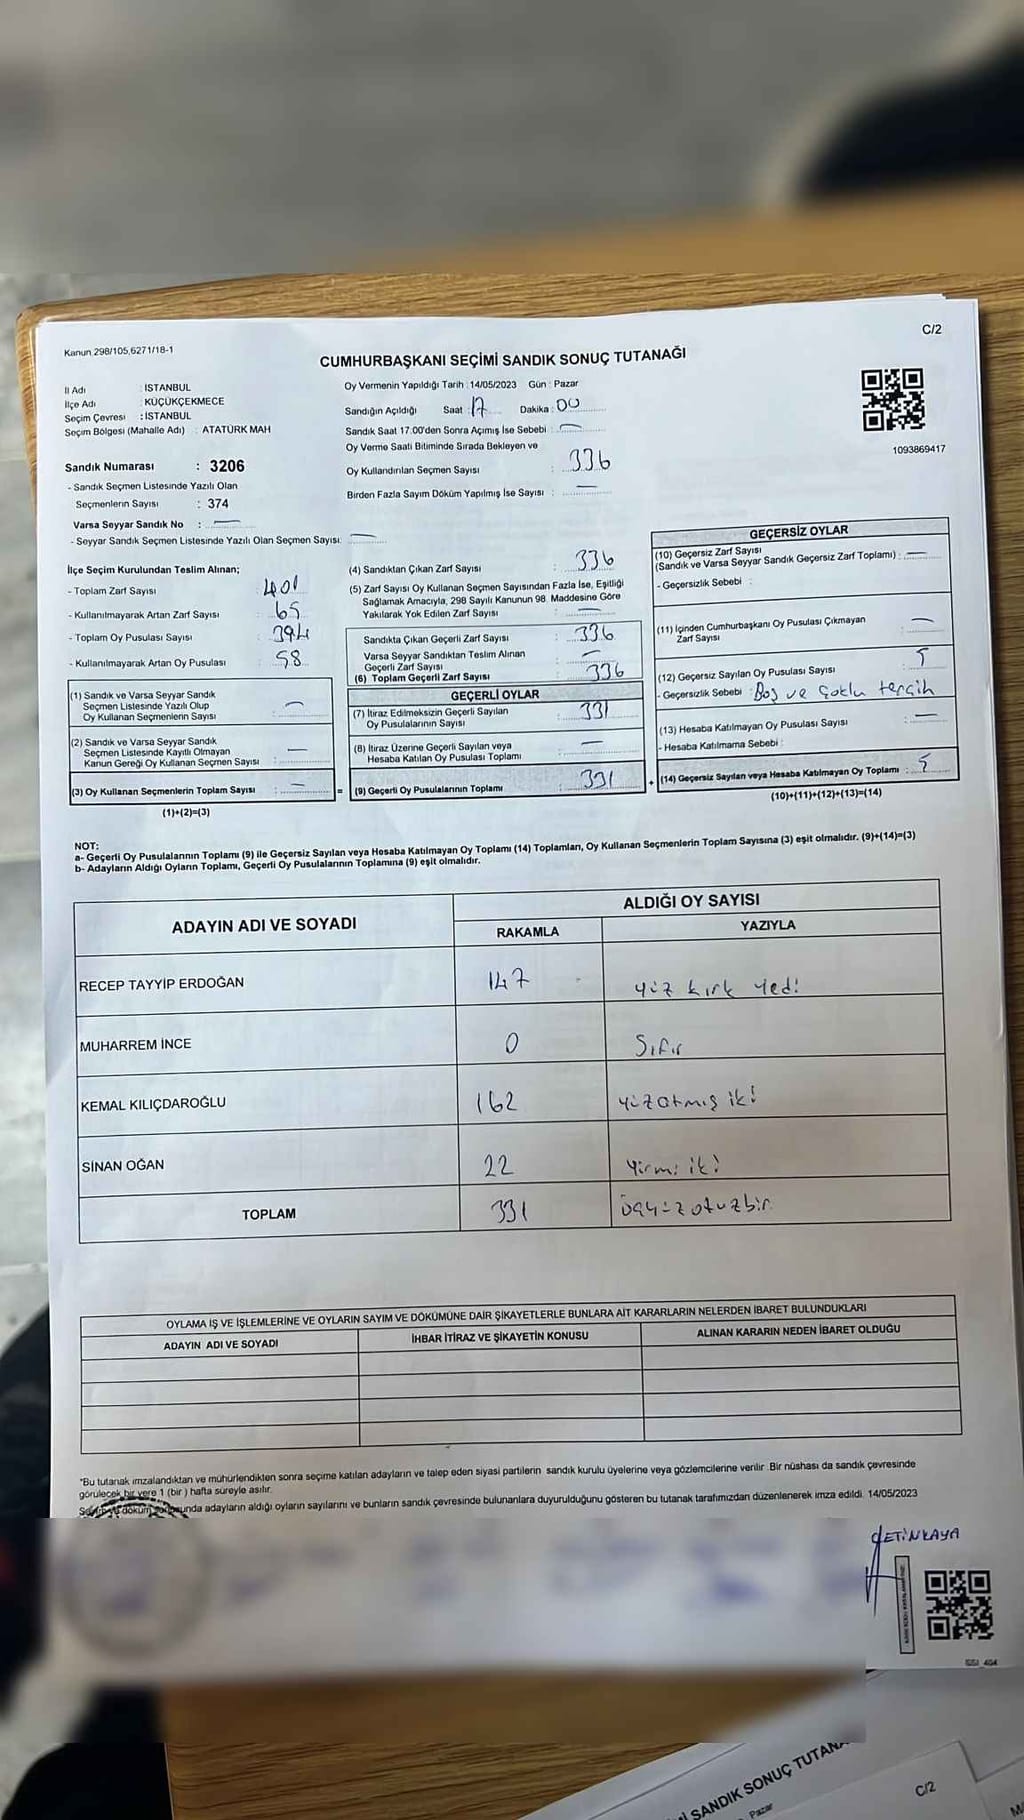 C/2
Kanun 298/105,6271/18-1
CUMHURBAŞKANI SEÇİMİ SANDIK SONUÇ TUTANAĞI
İl Adı : İSTANBUL
İlçe Adı : KÜÇÜKÇEKMECE
Seçim Çevresi : İSTANBUL
Seçim Bölgesi (Mahalle Adı) : ATATÜRK MAH
Sandık Numarası : 3206
- Sandık Seçmen Listesinde Yazılı Olan
Seçmenlerin Sayısı : 374
Varsa Seyyar Sandık No : —
- Seyyar Sandık Seçmen Listesinde Yazılı Olan Seçmen Sayısı: —
Oy Vermenin Yapıldığı Tarih : 14/05/2023 Gün : Pazar
Sandığın Açıldığı Saat : 17 Dakika : 00
Sandık Saat 17.00'den Sonra Açılmış İse Sebebi : —
Oy Verme Saati Bitiminde Sırada Bekleyen ve
Oy Kullandırılan Seçmen Sayısı : 336
Birden Fazla Sayım Döküm Yapılmış İse Sayısı : —
1093869417
İlçe Seçim Kurulundan Teslim Alınan;
- Toplam Zarf Sayısı : 401
- Kullanılmayarak Artan Zarf Sayısı : 65
- Toplam Oy Pusulası Sayısı : 394
- Kullanılmayarak Artan Oy Pusulası : 58
(1) Sandık ve Varsa Seyyar Sandık
Seçmen Listesinde Yazılı Olup
Oy Kullanan Seçmenlerin Sayısı : —
(2) Sandık ve Varsa Seyyar Sandık
Seçmen Listesinde Kayıtlı Olmayan
Kanun Gereği Oy Kullanan Seçmen Sayısı : —
(3) Oy Kullanan Seçmenlerin Toplam Sayısı : —
(1)+(2)=(3)
(4) Sandıktan Çıkan Zarf Sayısı : 336
(5) Zarf Sayısı Oy Kullanan Seçmen Sayısından Fazla İse, Eşitliği
Sağlamak Amacıyla, 298 Sayılı Kanunun 98. Maddesine Göre
Yakılarak Yok Edilen Zarf Sayısı : —
Sandıkta Çıkan Geçerli Zarf Sayısı : 336
Varsa Seyyar Sandıktan Teslim Alınan
Geçerli Zarf Sayısı : —
(6) Toplam Geçerli Zarf Sayısı : 336
GEÇERLİ OYLAR
(7) İtiraz Edilmeksizin Geçerli Sayılan
Oy Pusulalarının Sayısı : 331
(8) İtiraz Üzerine Geçerli Sayılan veya
Hesaba Katılan Oy Pusulası Toplamı : —
= (9) Geçerli Oy Pusulalarının Toplamı : 331
GEÇERSİZ OYLAR
(10) Geçersiz Zarf Sayısı
(Sandık ve Varsa Seyyar Sandık Geçersiz Zarf Toplamı) : —
- Geçersizlik Sebebi :
(11) İçinden Cumhurbaşkanı Oy Pusulası Çıkmayan
Zarf Sayısı : —
(12) Geçersiz Sayılan Oy Pusulası Sayısı : 5
- Geçersizlik Sebebi : Boş ve çoklu tercih
(13) Hesaba Katılmayan Oy Pusulası Sayısı : —
- Hesaba Katılmama Sebebi :
+ (14) Geçersiz Sayılan veya Hesaba Katılmayan Oy Toplamı : 5
(10)+(11)+(12)+(13)=(14)
NOT:
a- Geçerli Oy Pusulalarının Toplamı (9) ile Geçersiz Sayılan veya Hesaba Katılmayan Oy Toplamı (14) Toplamları, Oy Kullanan Seçmenlerin Toplam Sayısına (3) eşit olmalıdır. (9)+(14)=(3)
b- Adayların Aldığı Oyların Toplamı, Geçerli Oy Pusulalarının Toplamına (9) eşit olmalıdır.
ADAYIN ADI VE SOYADI
ALDIĞI OY SAYISI
RAKAMLA YAZIYLA
RECEP TAYYİP ERDOĞAN 147 yüz kırk yedi
MUHARREM İNCE 0 Sıfır
KEMAL KILIÇDAROĞLU 162 yüzatmış iki
SİNAN OĞAN 22 yirmi iki
TOPLAM 331 üçyüzotuzbir
OYLAMA İŞ VE İŞLEMLERİNE VE OYLARIN SAYIM VE DÖKÜMÜNE DAİR ŞİKAYETLERLE BUNLARA AİT KARARLARIN NELERDEN İBARET BULUNDUKLARI
ADAYIN ADI VE SOYADI İHBAR İTİRAZ VE ŞİKAYETİN KONUSU ALINAN KARARIN NEDEN İBARET OLDUĞU
*Bu tutanak imzalandıktan ve mühürlendikten sonra seçime katılan adayların ve talep eden siyasi partilerin sandık kurulu üyelerine veya gözlemcilerine verilir. Bir nüshası da sandık çevresinde
görülecek bir yere 1 (bir) hafta süreyle asılır.
döküm sonucunda adayların aldığı oyların sayılarını ve bunların sandık çevresinde bulunanlara duyurulduğunu gösteren bu tutanak tarafımızdan düzenlenerek imza edildi. 14/05/2023
ÇETİNKAYA
SANDIK SONUÇ TUTANA
Pazar
C/2